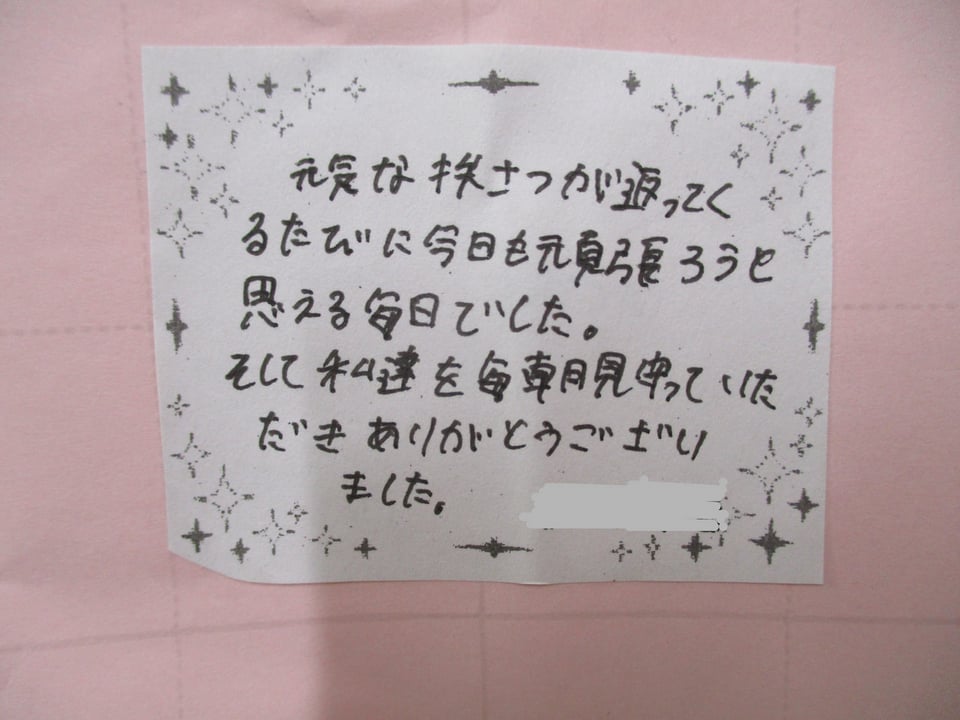 元気な挨さつが返ってく
るたびに今日も元頑張ろうと
思える毎日でした。
そして私達を毎朝見守っていた
だきありがとうございい
ました。